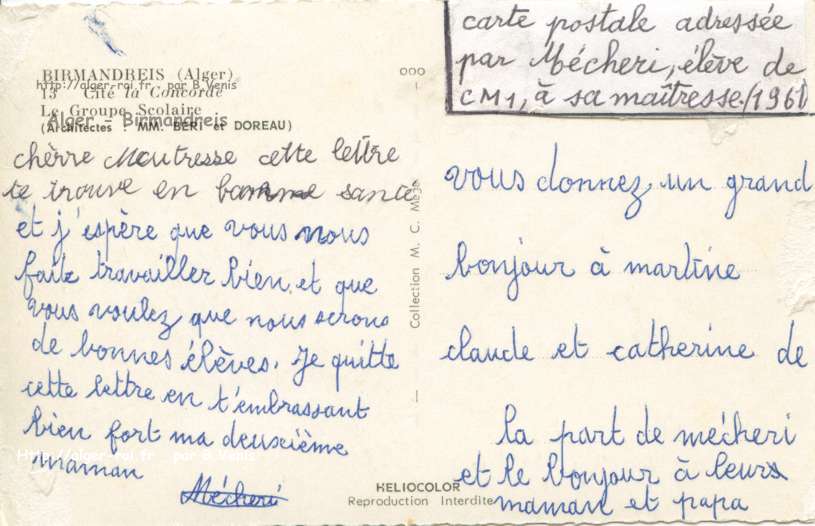 carte postale adressée
par Mécheri, élève de
CM1, à sa maîtresse/1961
BIRMANDREIS (Alger)
http://alger-roi.fr par B.Venis
13 Cité la Concorde
Le Groupe Scolaire
Alger - Birmandreis
(Architectes : MM. BERI et DOREAU)
chèrre Maitresse cette lettre
te trouve en bonne santé
et j'espère que vous nous
faite travailler bien. et que
vous voulez que nous serons
de bonnes élèves. Je quitte
cette lettre en t'embrassant
bien fort ma deuxième
http://alger-roi.fr par B.Venis
maman
Mécheri
ooo
Collection M. C. Méjo
HELIOCOLOR
Reproduction Interdite
vous donnez un grand
bonjour à martine
claude et catherine de
la part de mécheri
et le bonjour à leurs
maman et papa